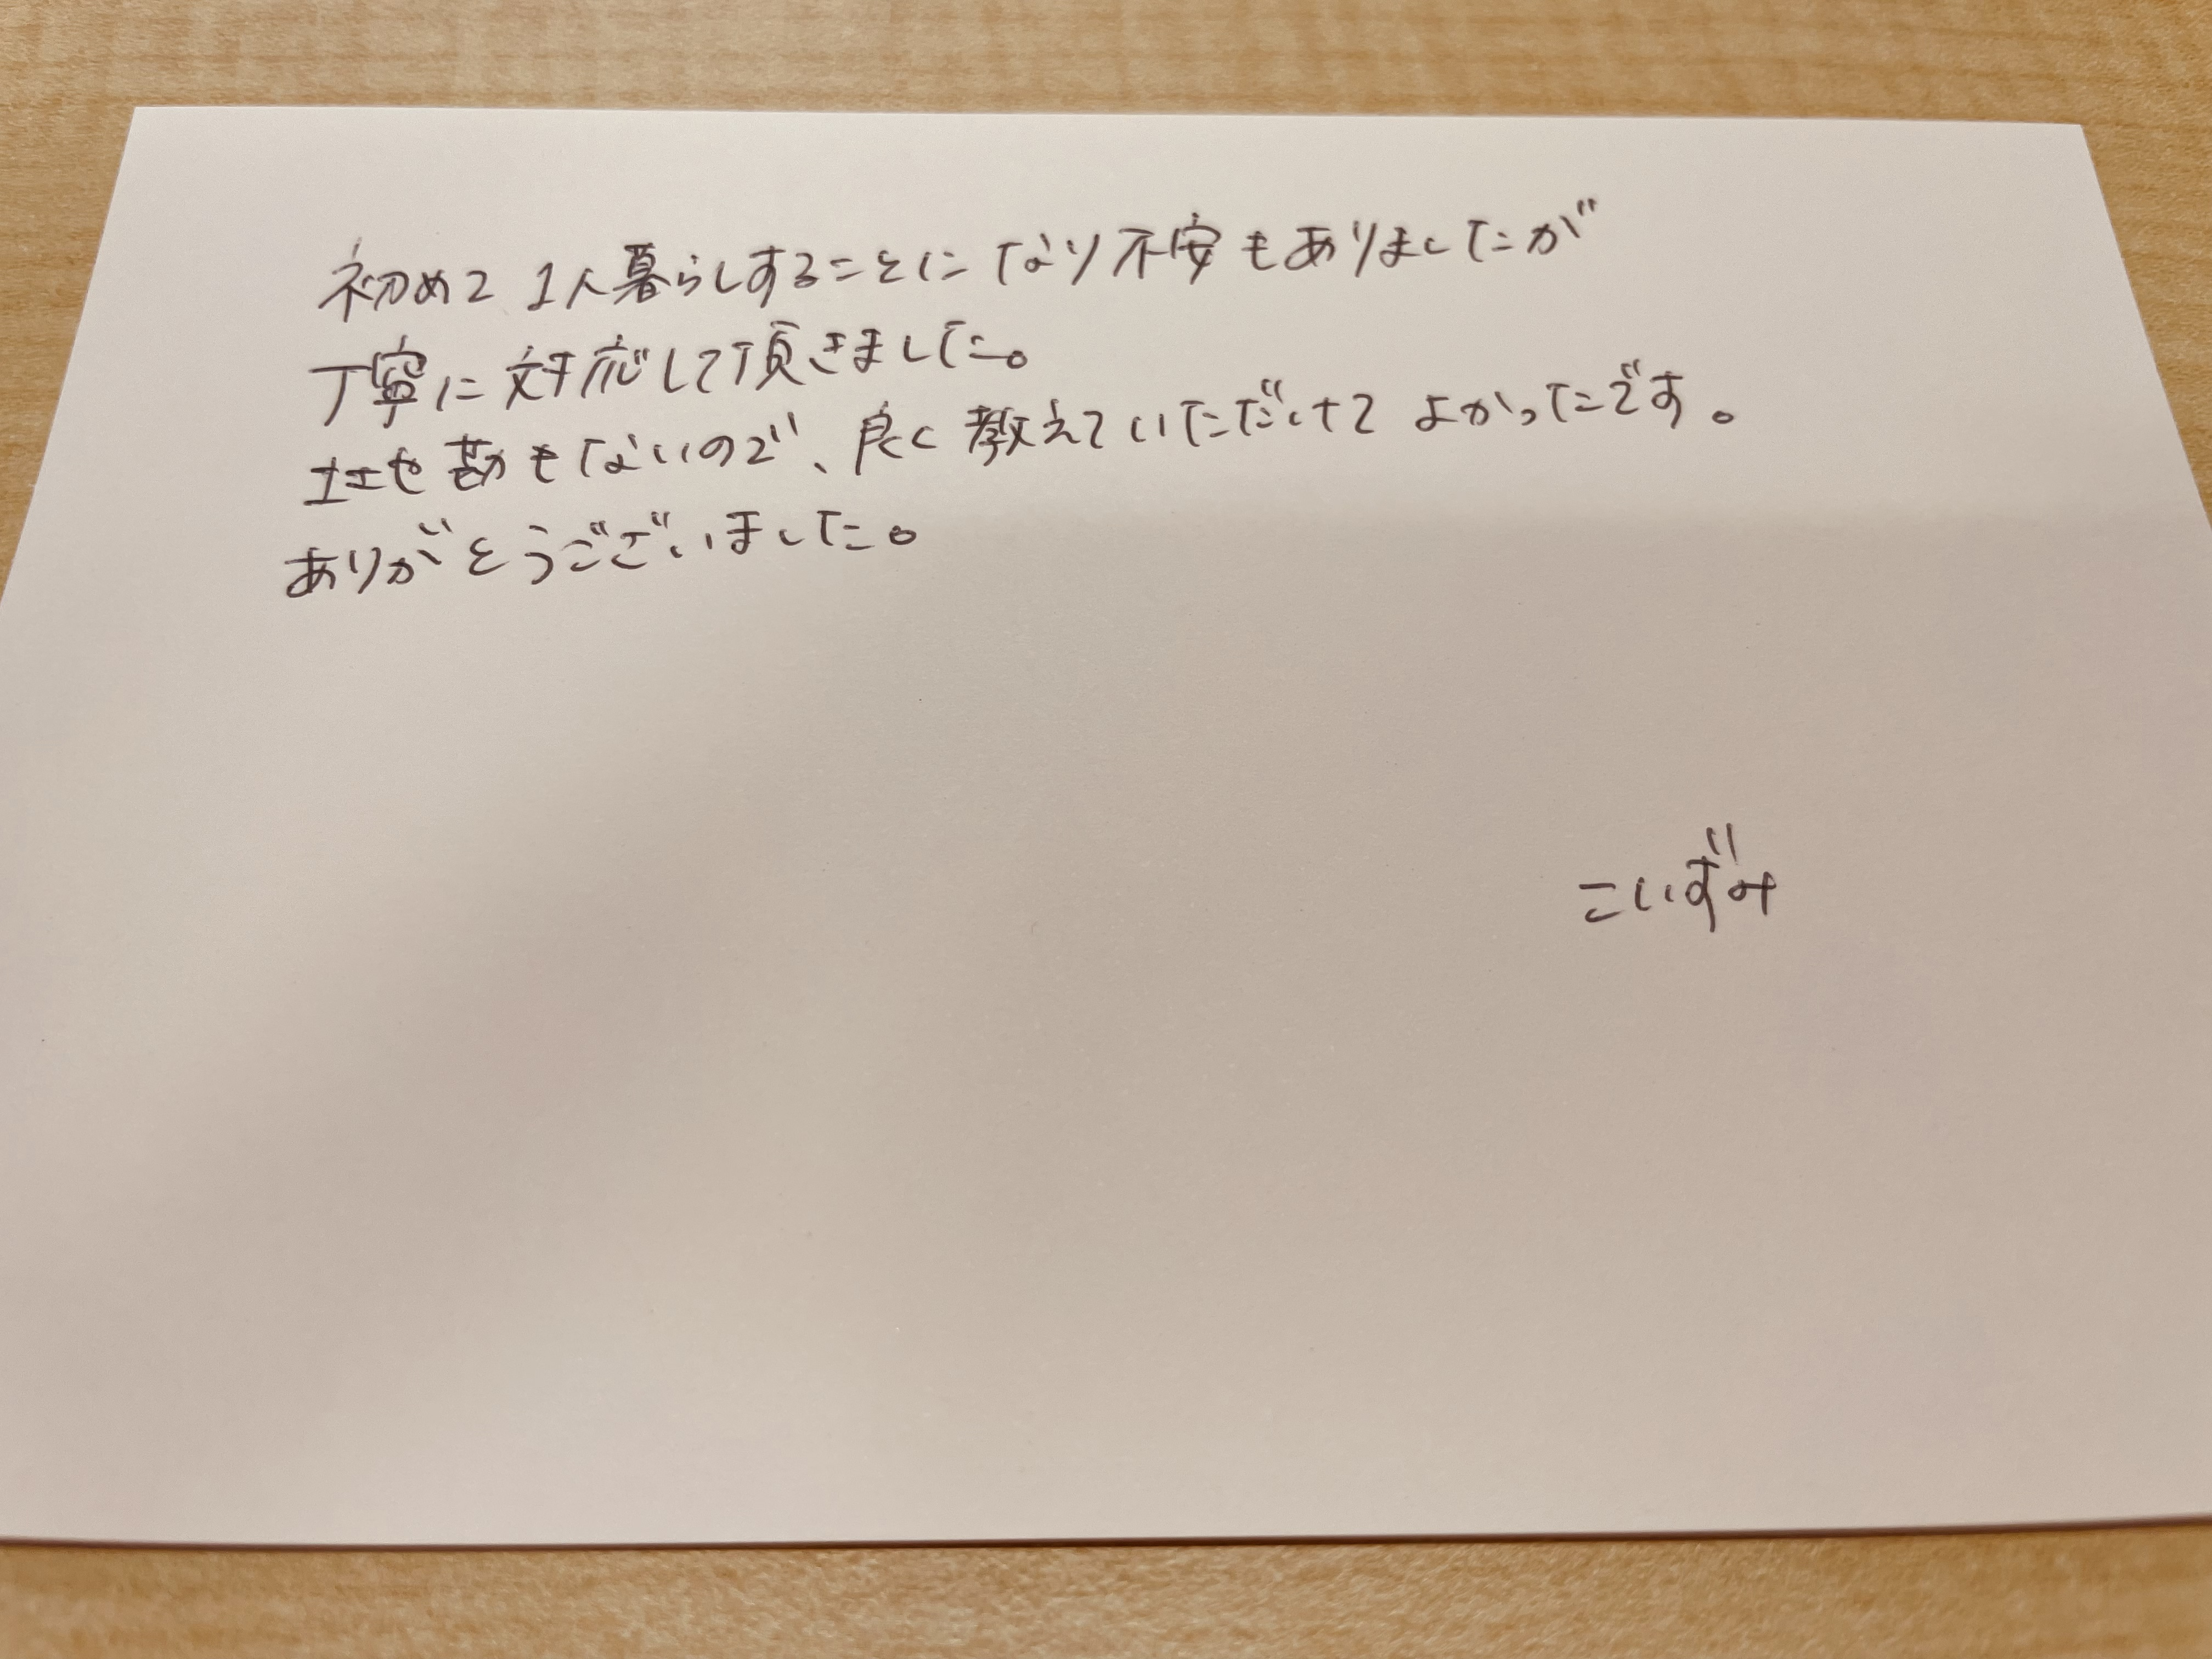 初めて1人暮らしすることになり不安もありましたが
丁寧に対応して頂きました。
土地勘もないので、良く教えていただけてよかったです。
ありがとうございました。
こいずみ